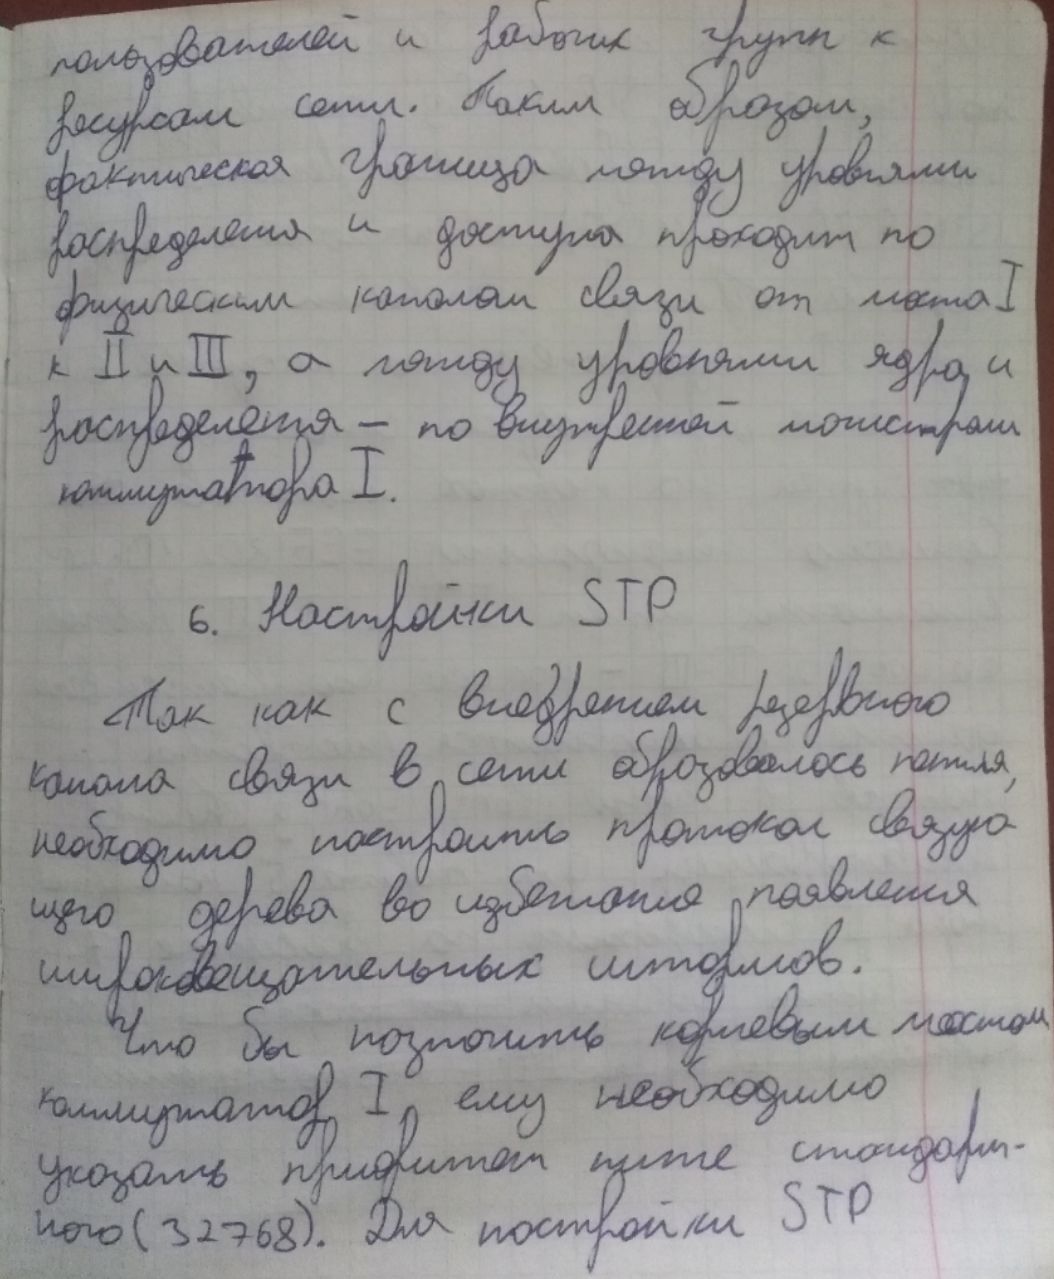 пользователей и рабочих групп к
ресурсам сети. Таким образом,
фактическая граница между уровнями
распределения и доступа проходит по
физическим каналам связи от моста I
к II и III, а между уровнями ядра и
распределения – по внутренней магистрали
коммутатора I.
6. Настройки STP
Так как с внедрением резервного
канала связи в сети образовалось петля,
необходимо настроить протокол связую
щего дерева во избежание появления
широковещательных штормов.
Что бы назначить корневым мостом
коммутатор I, ему необходимо
указать приоритет ниже стандарт-
ного (32768). Для настройки STP